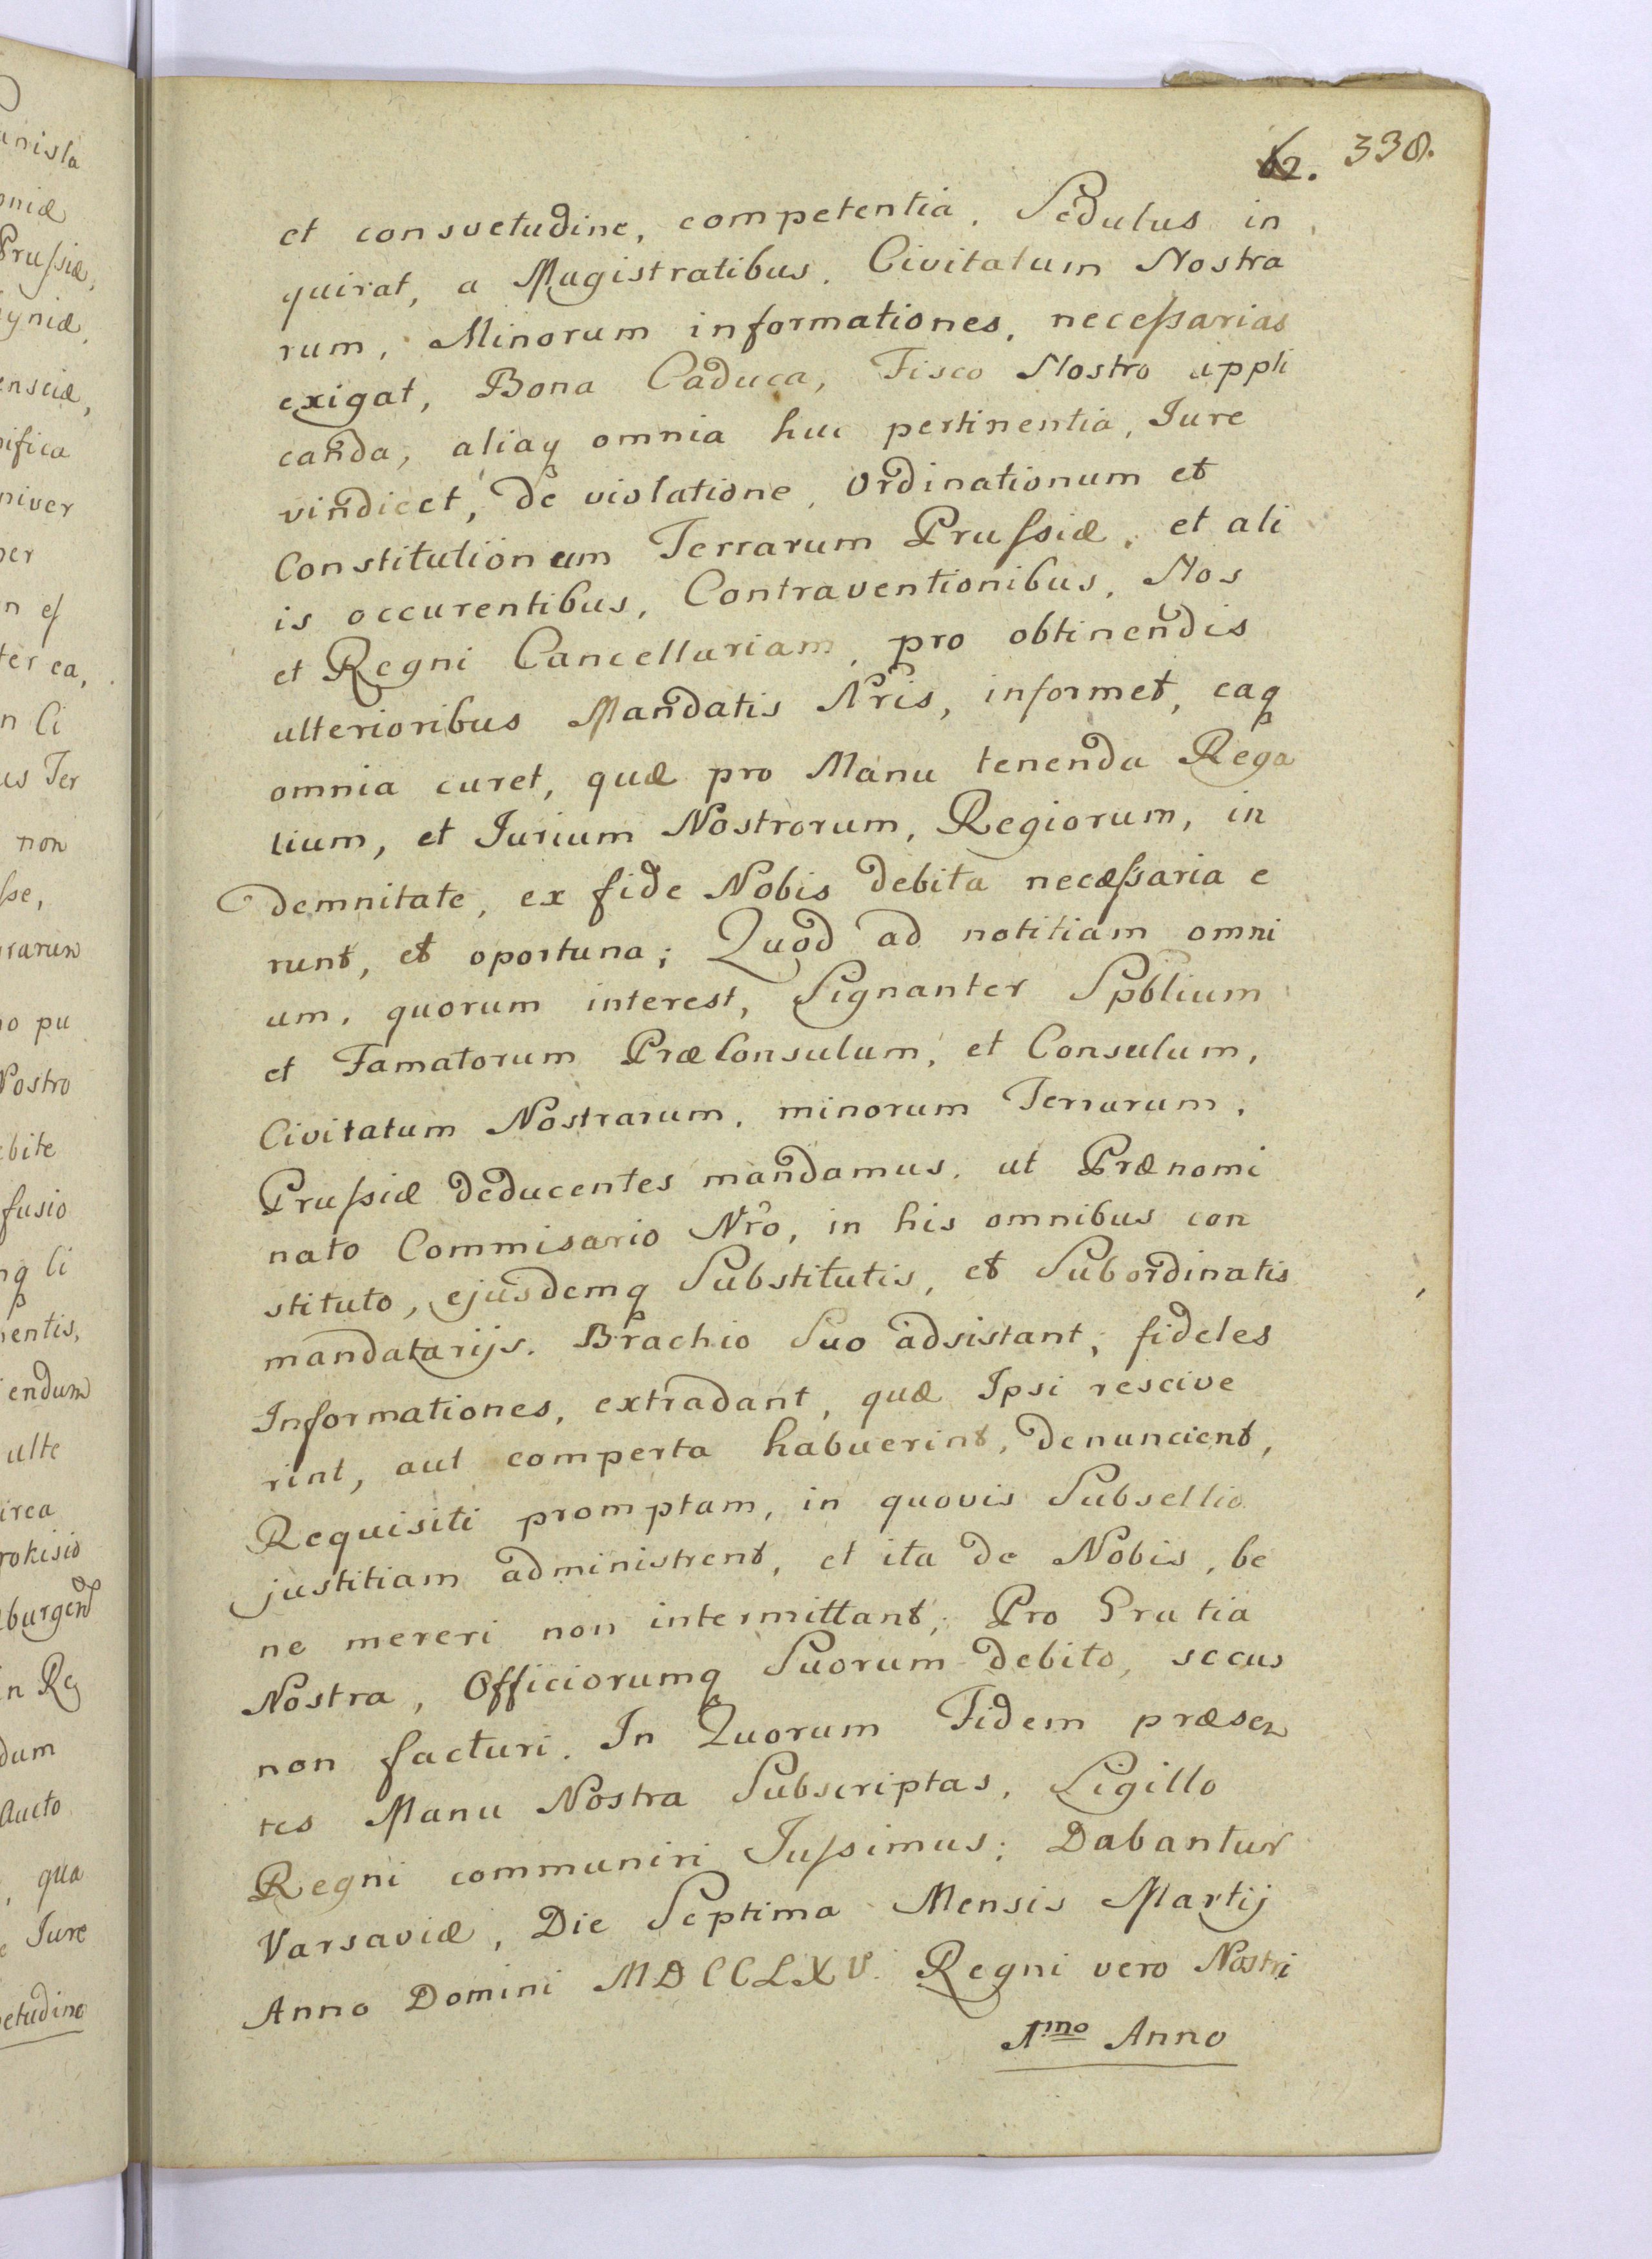 62. 338.
et consvetudine, competentia. Sedulus in
quirat, a Magistratibus. Civitatum Nostra
rum, Minorum informationes, neceßarias
exigat, Bona Caduca, Fisco Nostro appli
canda, aliaq omnia huc pertinentia, Jure
vindicet, de violatione, Ordinationum et
Constitutionum Terrarum Prußiæ. et ali
is occurentibus, Contraventionibus, Nos
et Regni Cancellariam, pro obtinendis
ulterioribus Mandatis Nris, informet, eaq
omnia curet, quæ pro Manu tenenda Rega
lium, et Jurium Nostrorum, Regiorum, in
demnitate, ex fide Nobis debita necæßaria e
runt, et oportuna; Quod ad notitiam omni
um, quorum interest, Signanter Spblium
et Famatorum PræConsulum, et Consulum,
Civitatum Nostrarum, minorum Terrarum,
Prußiæ deducentes mandamus. ut Prænomi
nato Commisario Nro, in his omnibus con
stituto, ejusdemq Substitutis, et Subordinatis
mandatarijs. Brachio Suo adsistant, fideles
Informationes, extradant, quæ Ipsi rescive
rint, aut comperta habuerint, denuncient,
Requisiti promptam, in quovis Subsellio
justitiam administrent, et ita de Nobis, be
ne mereri non intermittant; Pro Gratia
Nostra, Officiorumq Suorum debito, secus
non facturi. In Quorum Fidem præsen
tes Manu Nostra Subscriptas, Sigillo
Regni communiri Jußimus; Dabantur
Varsaviæ, Die Septima Mensis Martij
Anno Domini MDCCLXV. Regni vero Nostri
1mo Anno